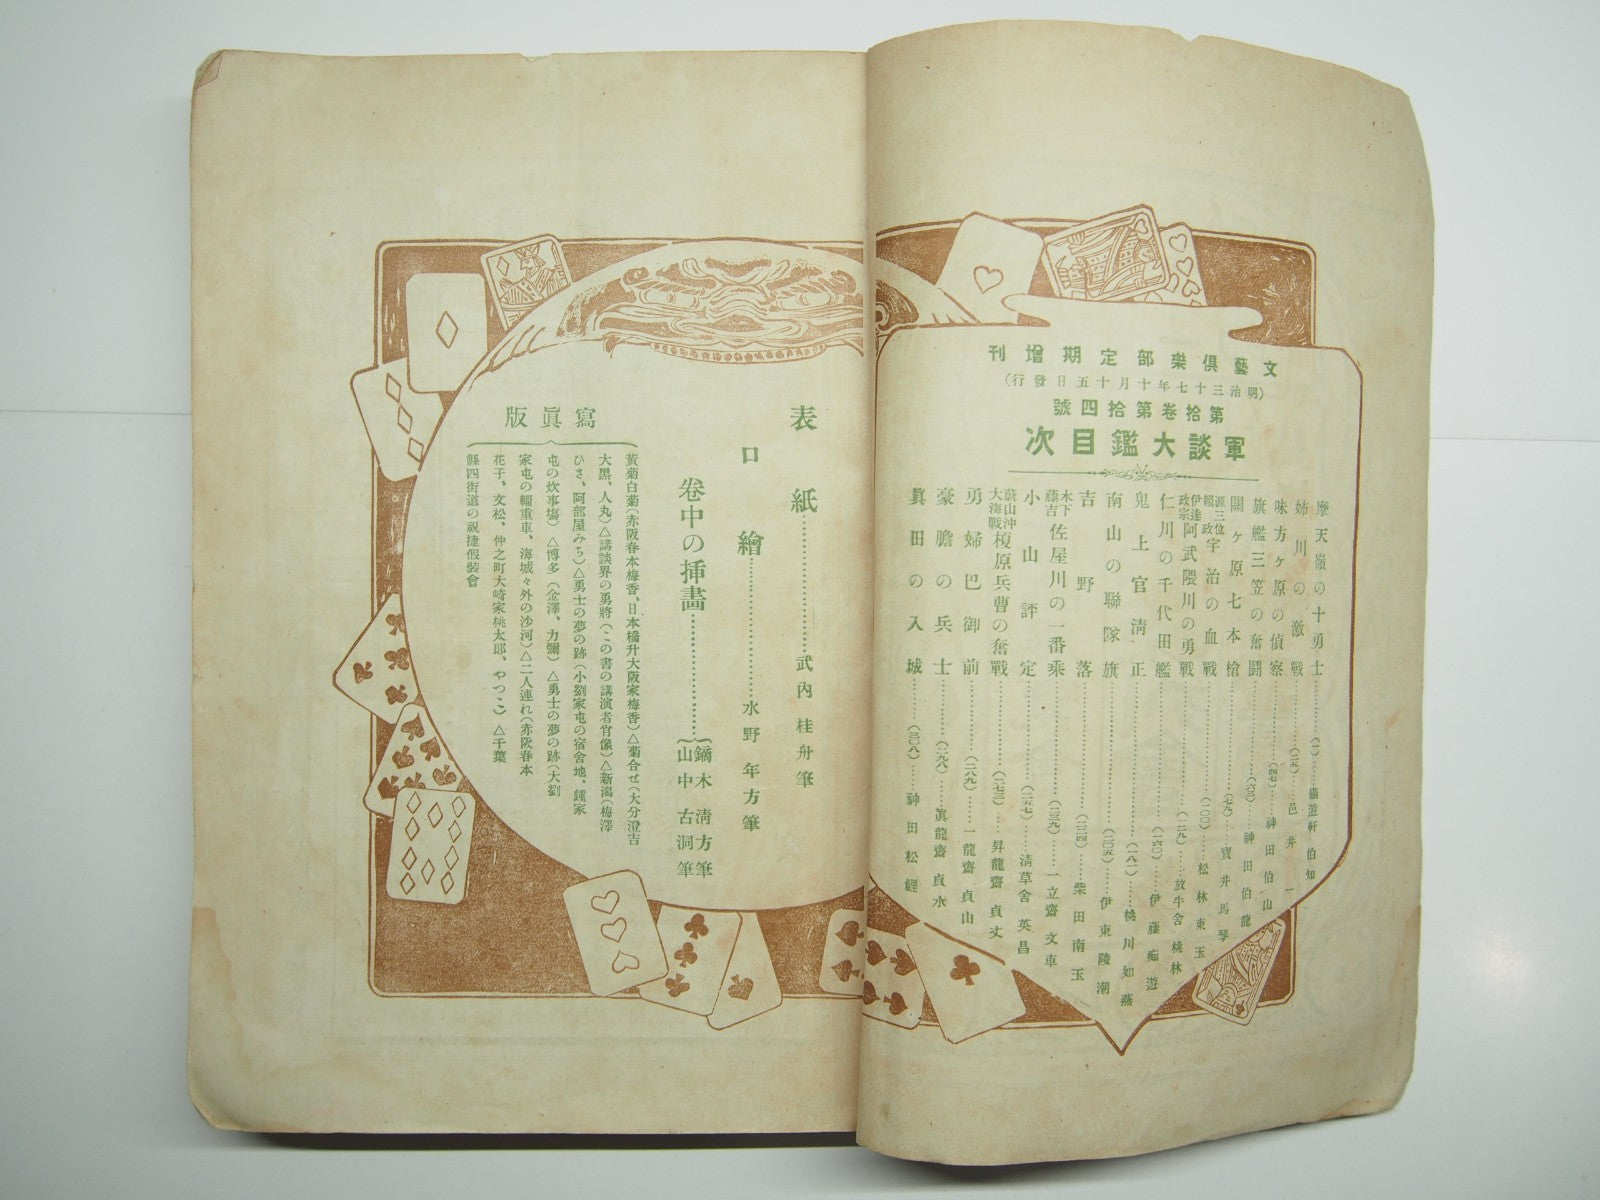 文藝倶樂部定期增刊
(明治三十七年十月十五日發行)
第拾卷第拾四號
軍談大鑑目次
摩天嶺の十勇士……(一)……猫遊軒伯知
姉川の激戰……(二五)……邑井一
味方ヶ原の偵察……(四七)……神田伯山
旗艦三笠の奮鬪……(六三)……神田伯龍
關ヶ原七本槍……(七九)……寳井馬琴
源三位賴政宇治の血戰……(一〇〇)……松林東玉
伊達政宗阿武隈川の勇戰……(一二九)……放牛舍桃林
仁川の千代田艦……(一六〇)……伊藤痴遊
鬼上官淸正……(一八一)……桃川如燕
南山の聯隊旗……(二〇五)……伊東陵潮
吉野落……(二三四)……柴田南玉
木下藤吉佐屋川の一番乘……(二三九)……一立齋文車
小山評定……(二五七)……淸草舍英昌
蔚山沖大海戰榎原兵曹の奮戰……(二七三)……昇龍齋貞丈
勇婦巴御前……(二八九)……一龍齋貞山
豪膽の兵士……(二九八)……眞龍齋貞水
眞田の入城……(三〇八)……神田松鯉
表紙……武內桂舟筆
口繪……水野年方筆
卷中の揷畵……鏑木淸方筆
山中古洞筆
寫眞版
黃菊白菊(赤阪春本梅香、日本橋升大阪家梅香)△菊合せ(大分澄吉
大黑、人丸)△講談界の勇將(この書の講演者肖像)△新潟(梅澤
ひさ、阿部屋みち)△勇士の夢の跡(小劉家屯の宿舍地、鍾家
屯の炊事塲)△博多(金澤、力彌)△勇士の夢の跡(大劉
家屯の輜重車、海城々外の沙河)△二人連れ(赤阪春本
花子、文松、仲之町大崎家桃太郎、やつこ)△千葉
縣四街道の祝捷假裝會